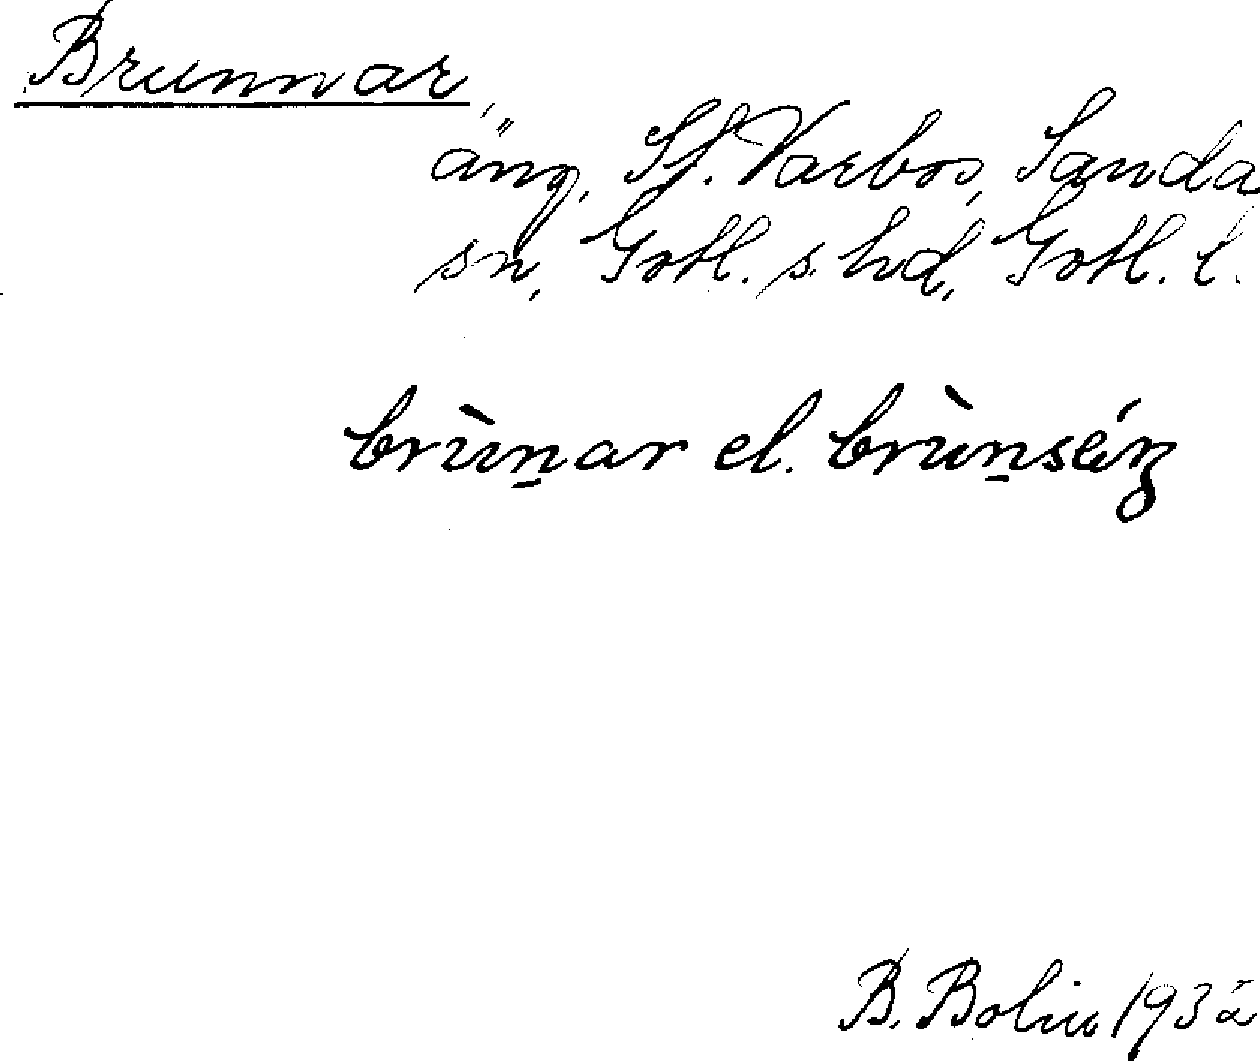 Brunnar,
äng, Sf. Varbos, Sanda
sn, Gotl. s. hd, Gotl. l.
brùn̠ar el. brùn̠séŋ
B. Bolin 1932